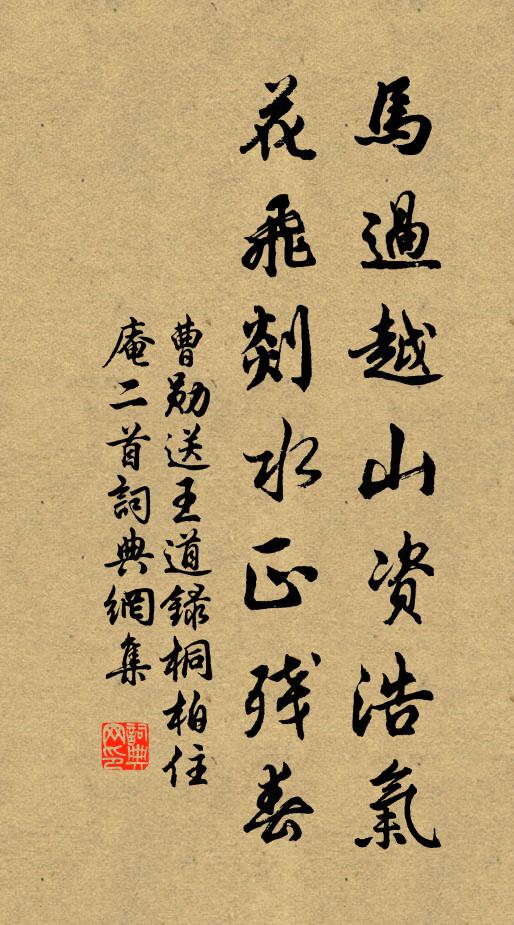 馬過越山資浩氣
花飛剡水正殘春
曹勛送王道錄桐柏住
庵二首詞典網集
詞典网印